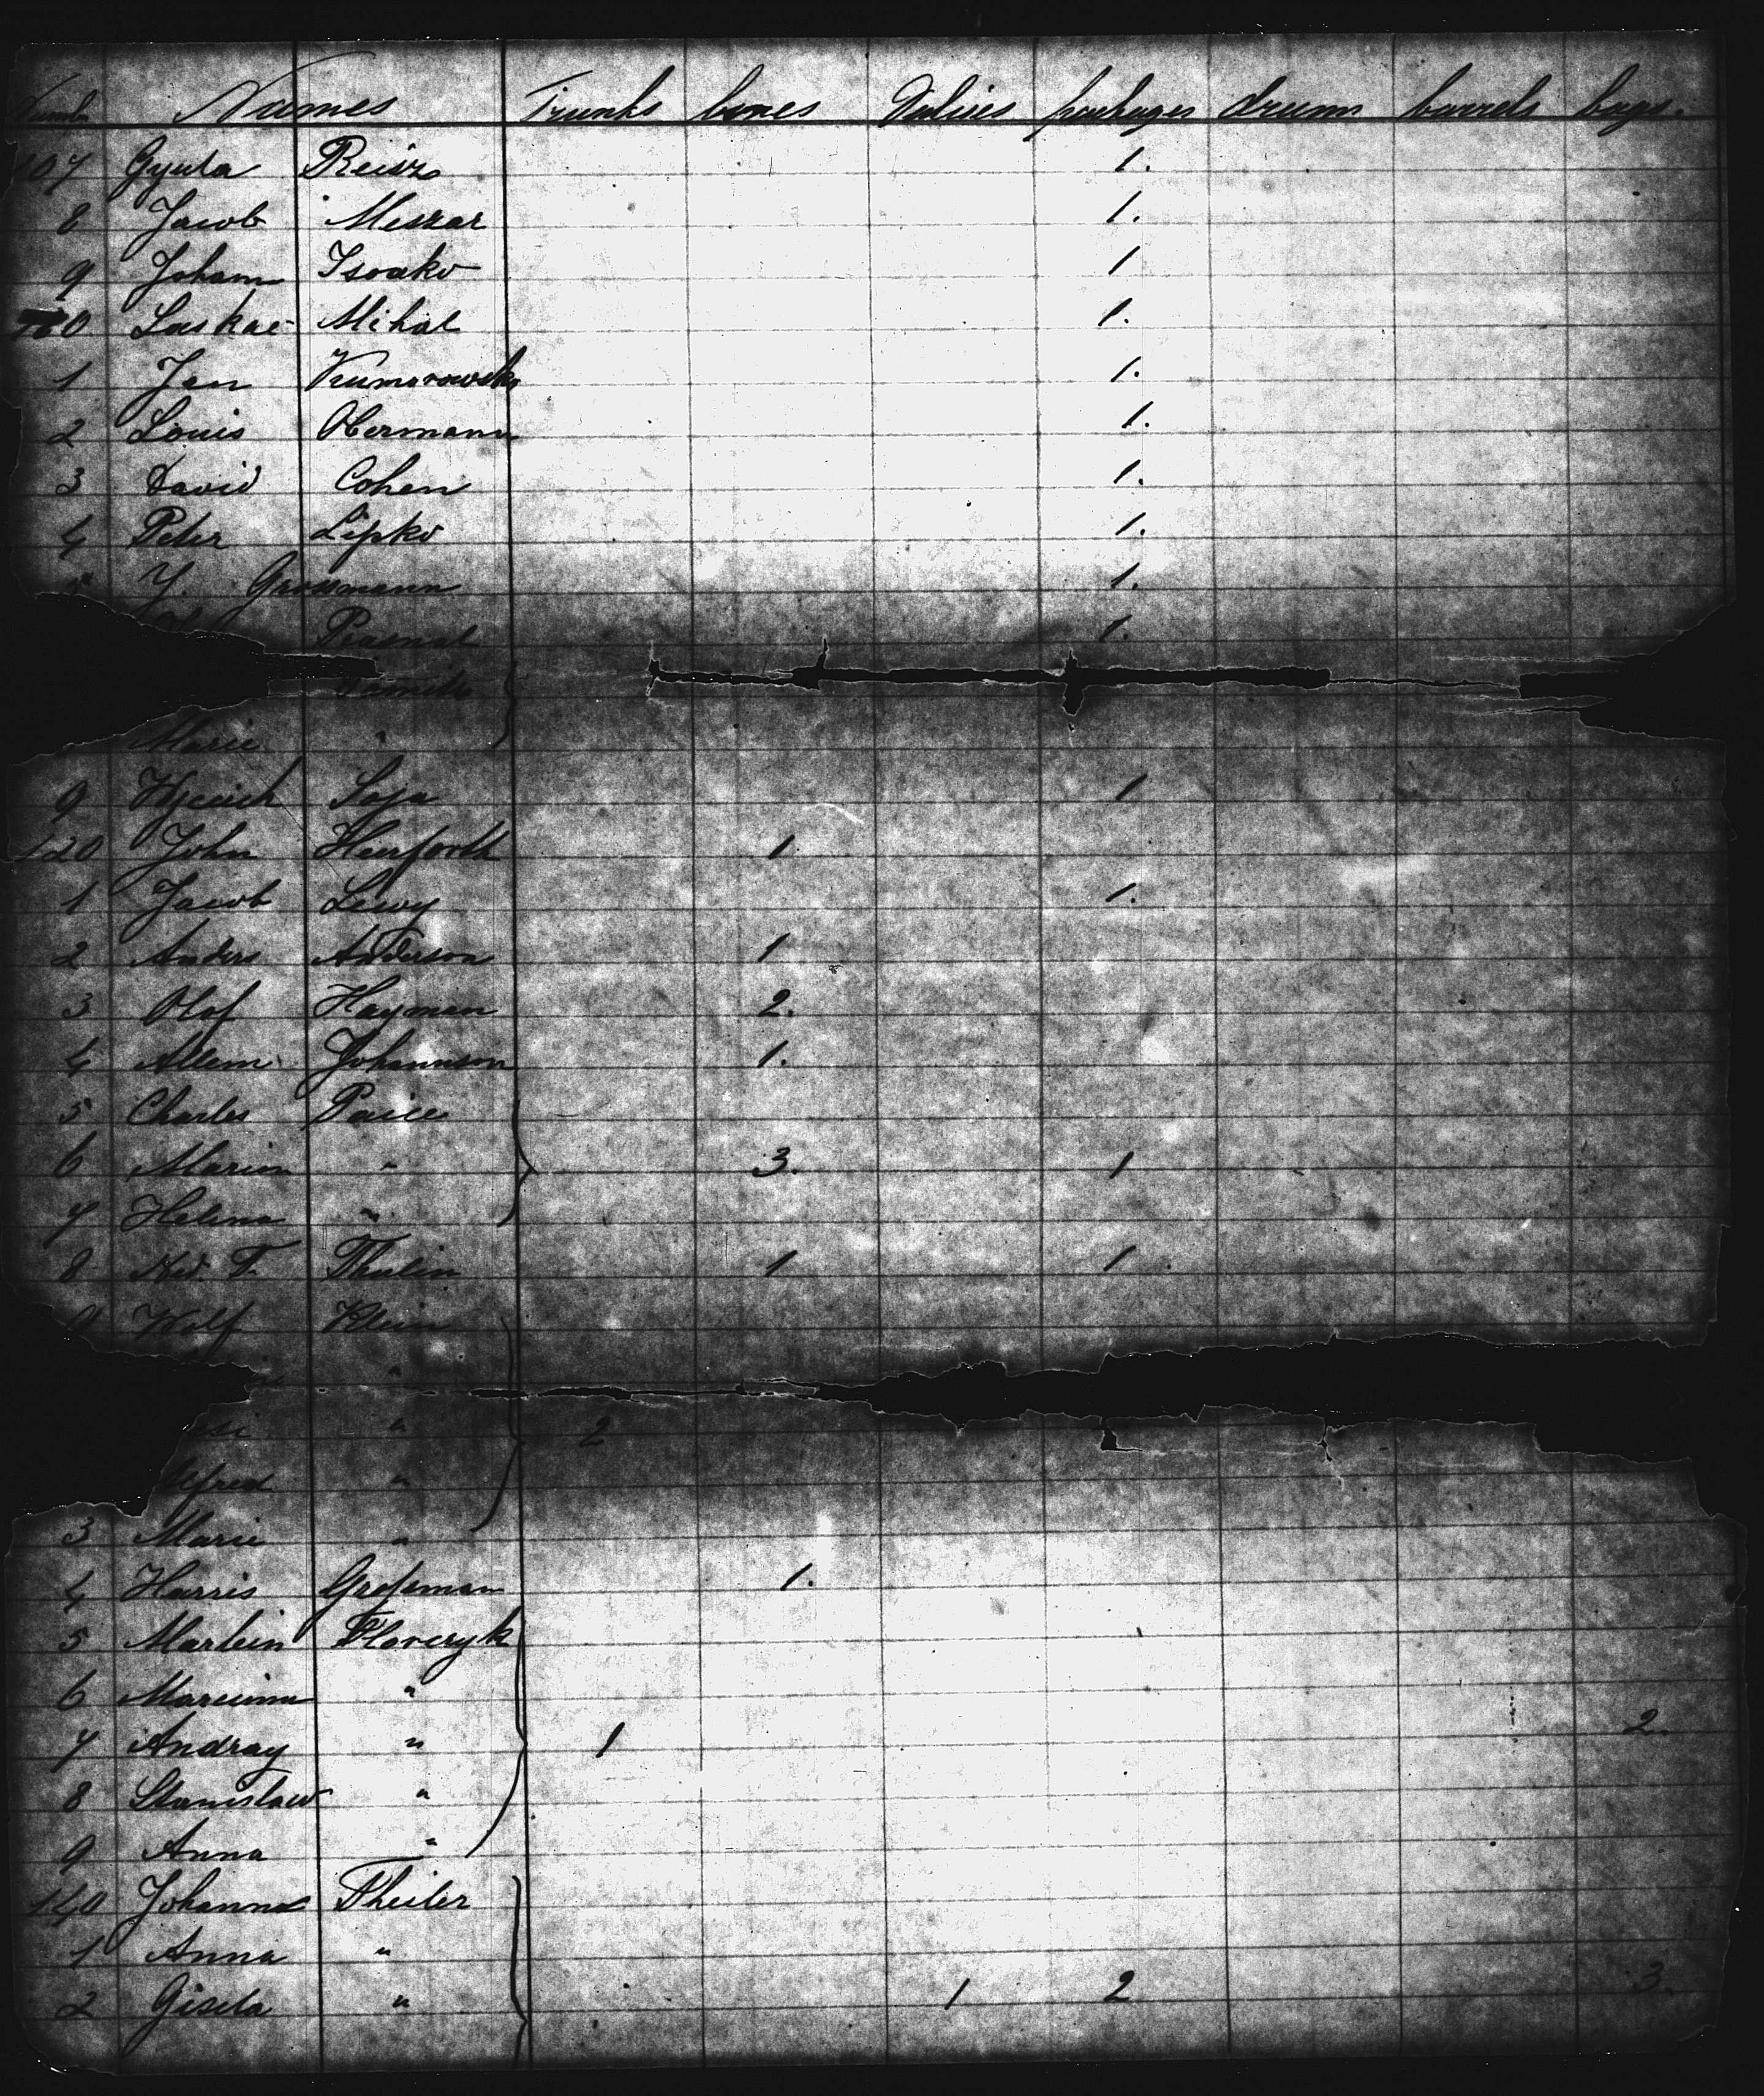 Names Trunks boxes Valises packages drum barrels bags.
107 Gyula Reisz 1.
8 Jacob Meszar 1.
9 Johann Isoako 1
Laskae Mihal 1.
1 Jan 1.
2 Louis Obermann 1.
3 David Cohen 1.
4 Peter Lipko 1.
5 Y. Grossmann 1.
1.
Marie "
9 Soja 1
120 John Herforth 1
1 Jacob Lewy 1.
2 Anders Anderson 1
3 Olof Hayman 2.
4 Allem Johannson 1.
5 Charles Paice
6 Marion " 3. 1
7 Helena "
8 Thulin 1 1.
9 Wolf Klein
"
" 2
Alfred "
3 Marie "
4 Harris Grossman 1.
5 Martein Floreryk
6 "
7 Andray " 1 2.
8 Stanislaw "
9 Anna "
140 Johanna Theiler
1 Anna "
2 Gisela " 1 2 3.